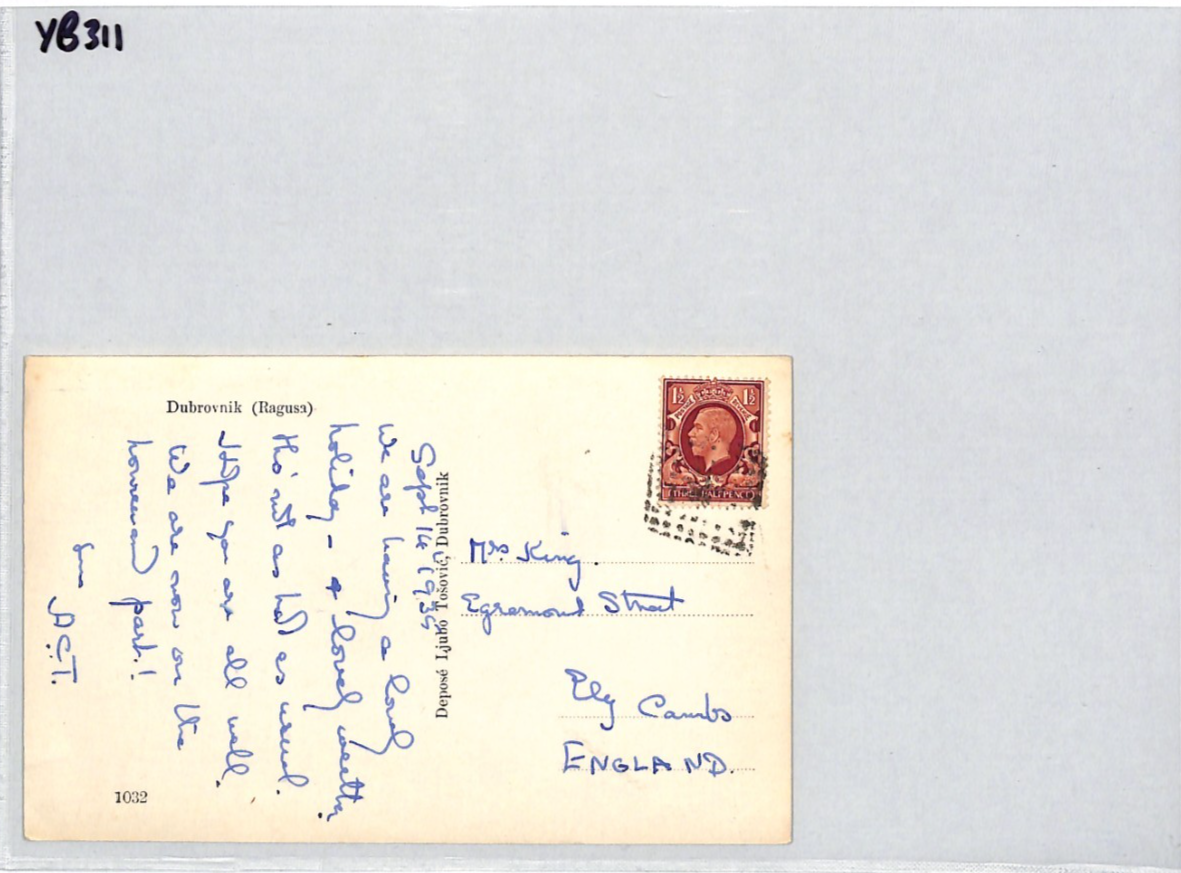 YB311
Dubrovnik (Ragusa)
Sept 14 1935
We are having a lovely
holiday - & lovely weather,
tho' not as hot as usual.
Hope you are all well.
We are now on the
homeward part!
A.C.T.
1032
Deposé Ljubo Tošović, Dubrovnik
1½ 1½
POSTAGE REVENUE
THREE HALFPENCE
Mrs. King.
Egremont Street
Ely Cambs
ENGLAND.